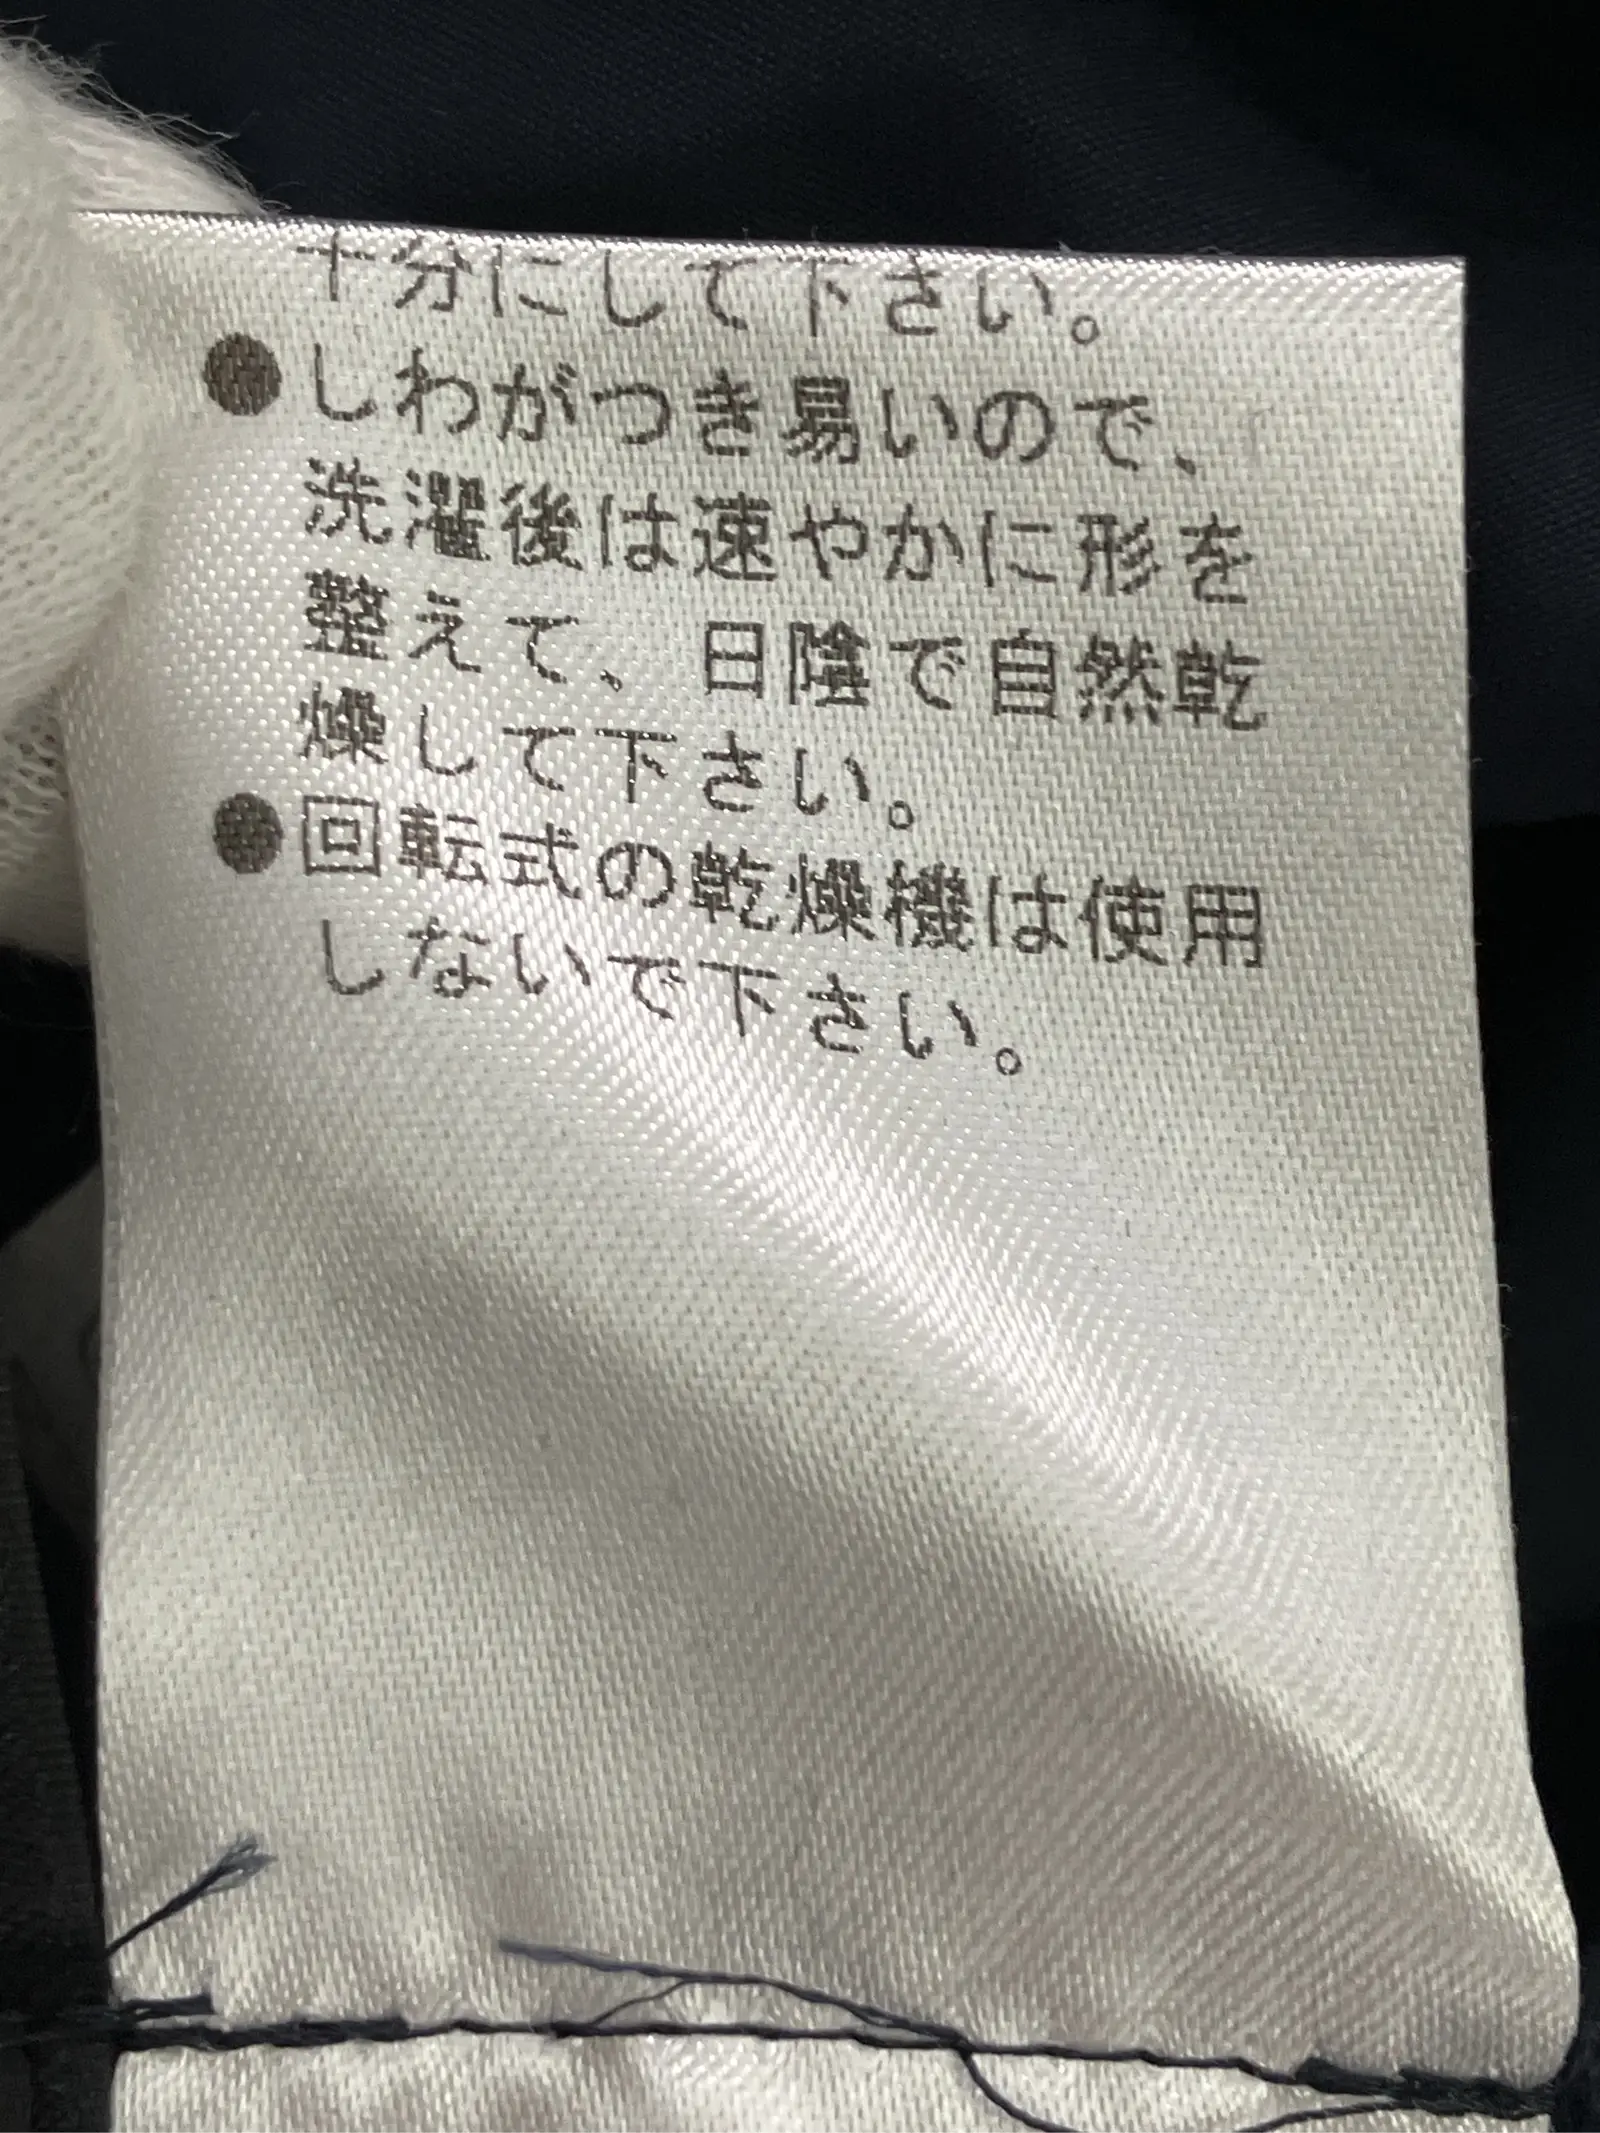 十分にして下さい。
●しわがつき易いので、
洗濯後は速やかに形を
整えて、日陰で自然乾
燥して下さい。
●回転式の乾燥機は使用
しないで下さい。